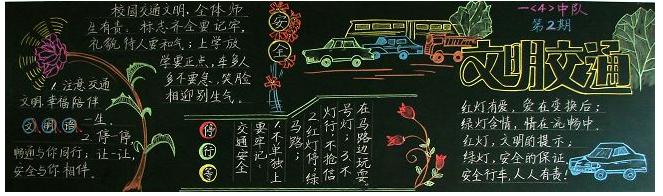 校园交通文明,全体师
生有责:标志齐全要记牢,
礼貌待人要和气;上学放
学要正点,车多人
多不要急,笑脸
相迎别生气。
安全
一<4>中队
第2期
文明交通
1.注意交通
文明,幸福陪伴
一生。
文明语
2.停一停,
畅通与你同行;让一让,
安全与你相伴。
停行等
交通安全
要牢记:
1.不单独上
马路;
2.红灯停,绿
灯行,不抢信
号灯;3.不
在马路边玩耍。
红灯有爱,爱在变换后;
绿灯含情,情在沆畅中。
红灯,文明的提示;
绿灯,安全的保证。
安全行车,人人有责!